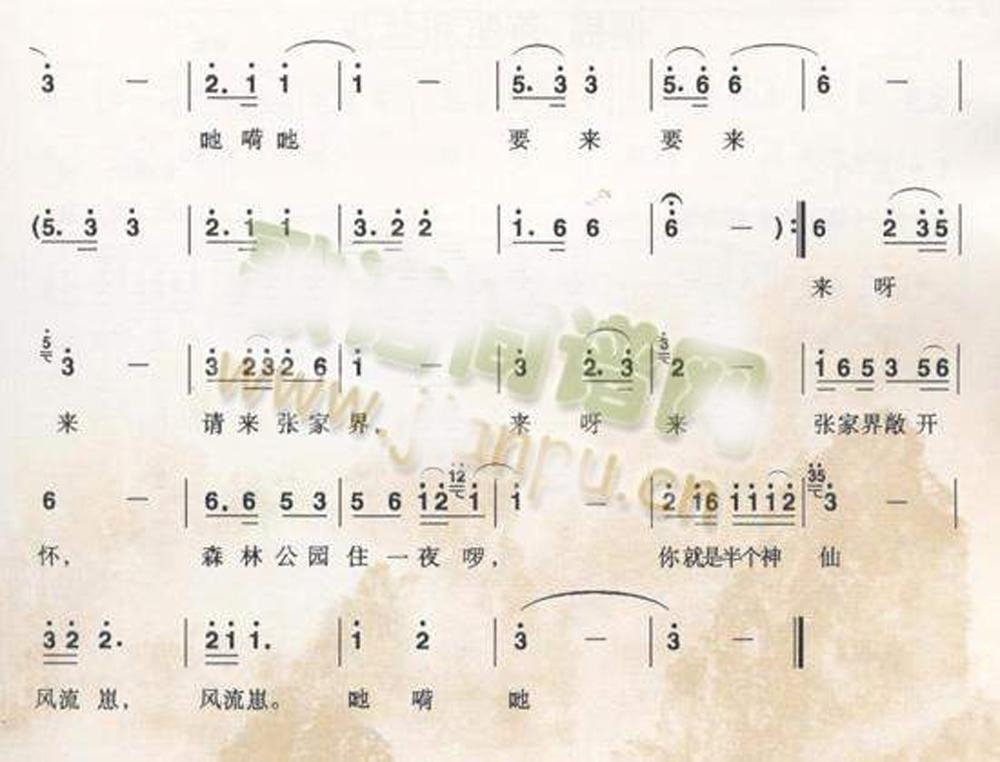 3̇ — | 2̇. 1̇ 1̇ | 1̇ — | 5̇. 3̇ 3̇ | 5̇. 6̇ 6̇ | 6̇ — |
吔 嗬 吔 要 来 要 来
(5̇. 3̇ 3̇ | 2̇. 1̇ 1̇ | 3̇. 2̇ 2̇ | 1̇. 6 6 | 6̇ — ) :‖ 6 2̇ 3̇5̇ |
来 呀
5̇ 3̇ — | 3̇ 2̇3̇2̇ 6 | 1̇ — | 3̇ 2̇. 3̇ | 3̇ 2̇ — | 1̇ 6 5 3 5 6 |
来 请 来 张 家 界， 来 呀 来 张家界敞 开
6 — | 6. 6 5 3 | 5 6 1̇2̇ 1̇2̇ 1̇ | 1̇ — | 2̇ 1̇6 1̇1̇1̇2̇ | 3̇5̇ 3̇ — |
怀， 森 林 公 园 住 一 夜 啰， 你就是半个神 仙
3̇ 2̇ 2̇. | 2̇ 1̇ 1̇. | 1̇ 2̇ | 3̇ — | 3̇ — ‖
风流 崽， 风流崽。 吔 嗬 吔
www.jianpu.cn